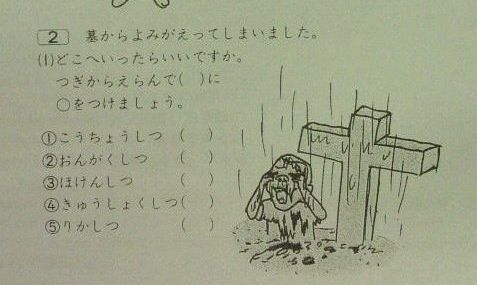 2 墓からよみがえってしまいました。
(1)どこへいったらいいですか。
つぎからえらんで( )に
○をつけましょう。
①こうちょうしつ ( )
②おんがくしつ ( )
③ほけんしつ ( )
④きゅうしょくしつ( )
⑤りかしつ ( )